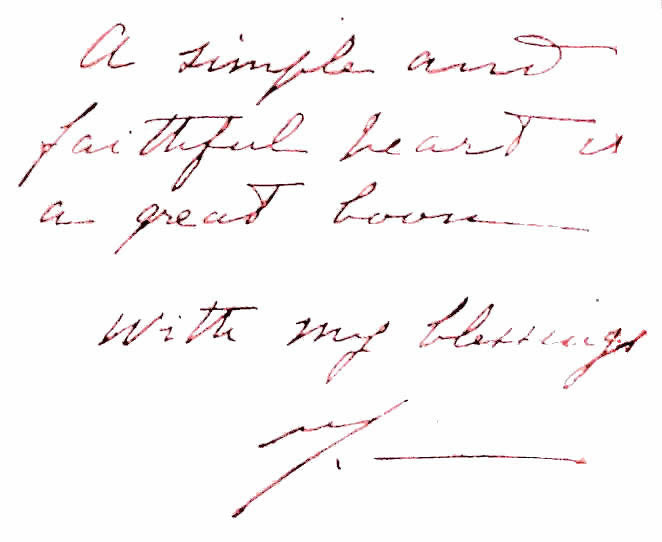 A simple and
faithful heart is
a great boon
with my blessings